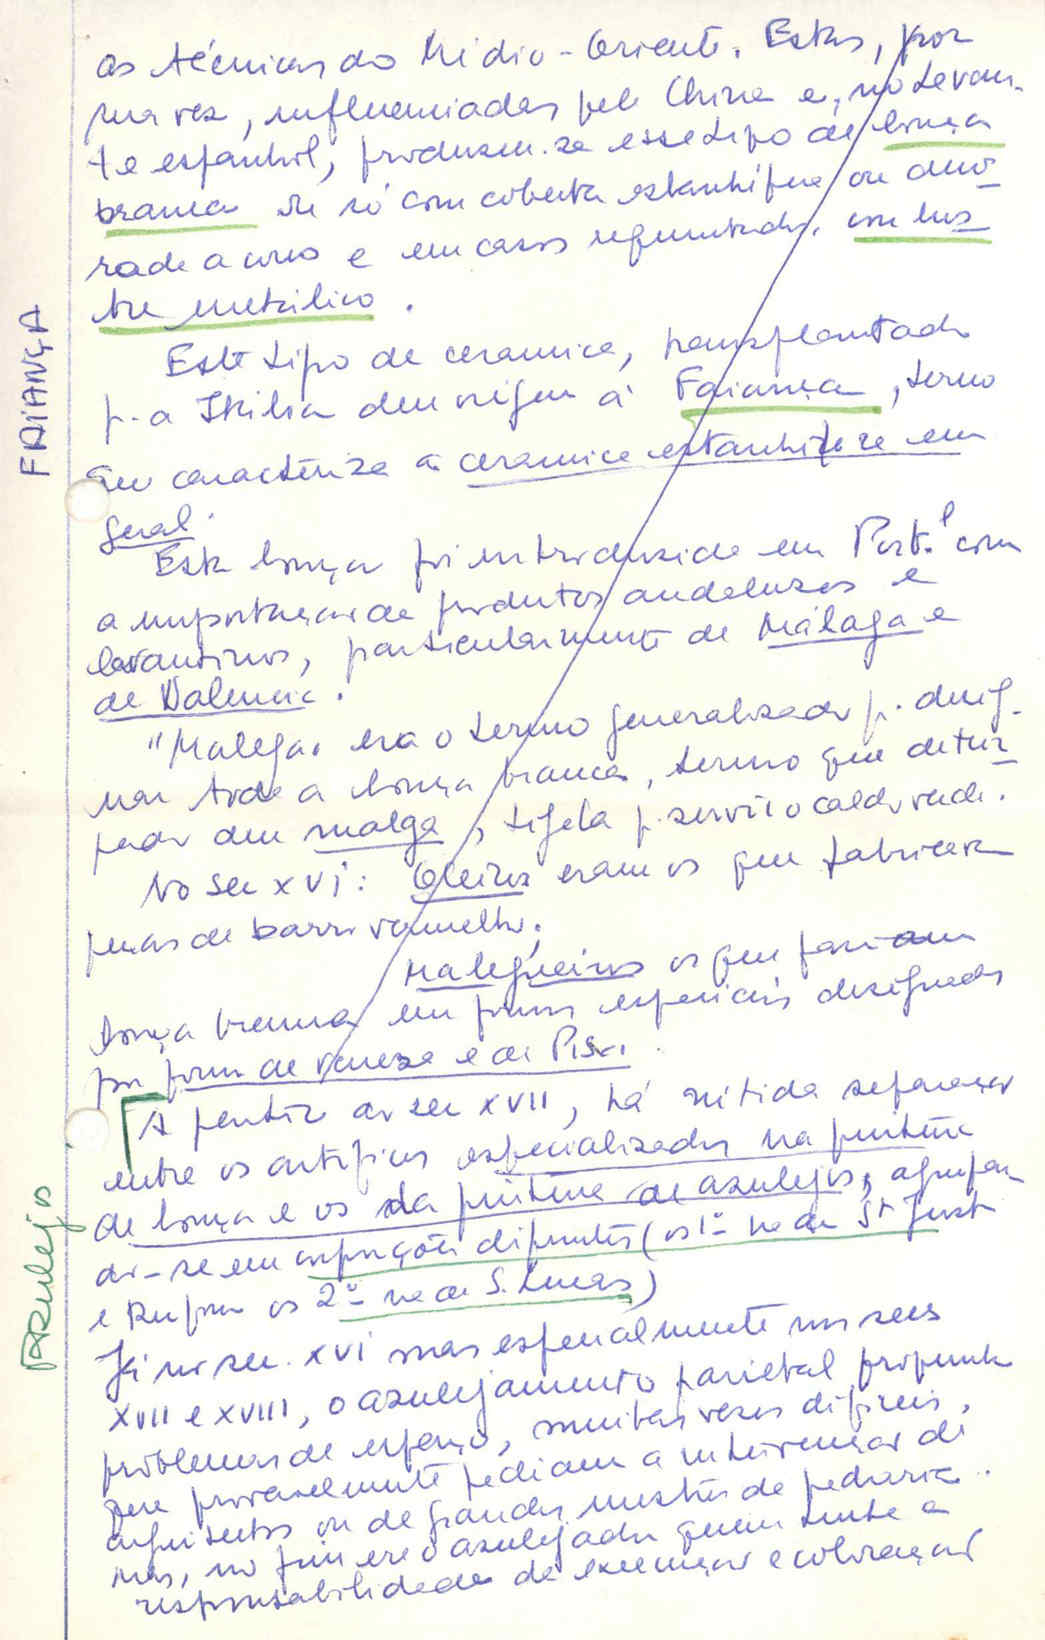 as técnicas do Médio-Oriente. Estas, por
sua vez, influenciadas pela China e, no Levan-
te espanhol, produzem-se esse tipo de louça
branca ou só com coberta estanhífera ou deco-
rada a cores e em casos requintados, com lus-
tre metálico.
FAIANÇA
Este tipo de ceramica, transplantado
p.a Itália deu origem à Faiança, termo
que caracteriza a ceramica estanhifera em
geral.
Esta louça foi introduzida em Port.l com
a importação de produtos andaluzes e
levantinos, particularmente de Málaga e
de Valencia.
"Malega" era o termo generalizado p. desig-
nar toda a louça branca, termo que detur-
pado deu malga, tigela p. servir o caldo verde.
No sec XVI: Oleiros eram os que fabricavam
peças de barro vermelho;
Malegueiros os que faziam
louça branca em fornos especiais designados
por forno de veneza e de Pisa.
A partir do sec XVII, há nitida separação
entre os artífices especializados na pintura
de louça e os da pintura de azulejos, agrupan
do-se em corporações diferentes (os 1os na de Sta Justa
e Rufina os 2os na de S. Lucas)
Azulejos
Já no sec. XVI mas especialmente nos secs
XVII e XVIII, o azulejamento parietal propunha
problemas de espaço, muitas vezes difíceis,
que provavelmente pediam a intervenção de
arquitectos ou de grandes mestres de pedraria.
mas, no fim era o azulejador quem tinha a
responsabilidade da execução e colocação